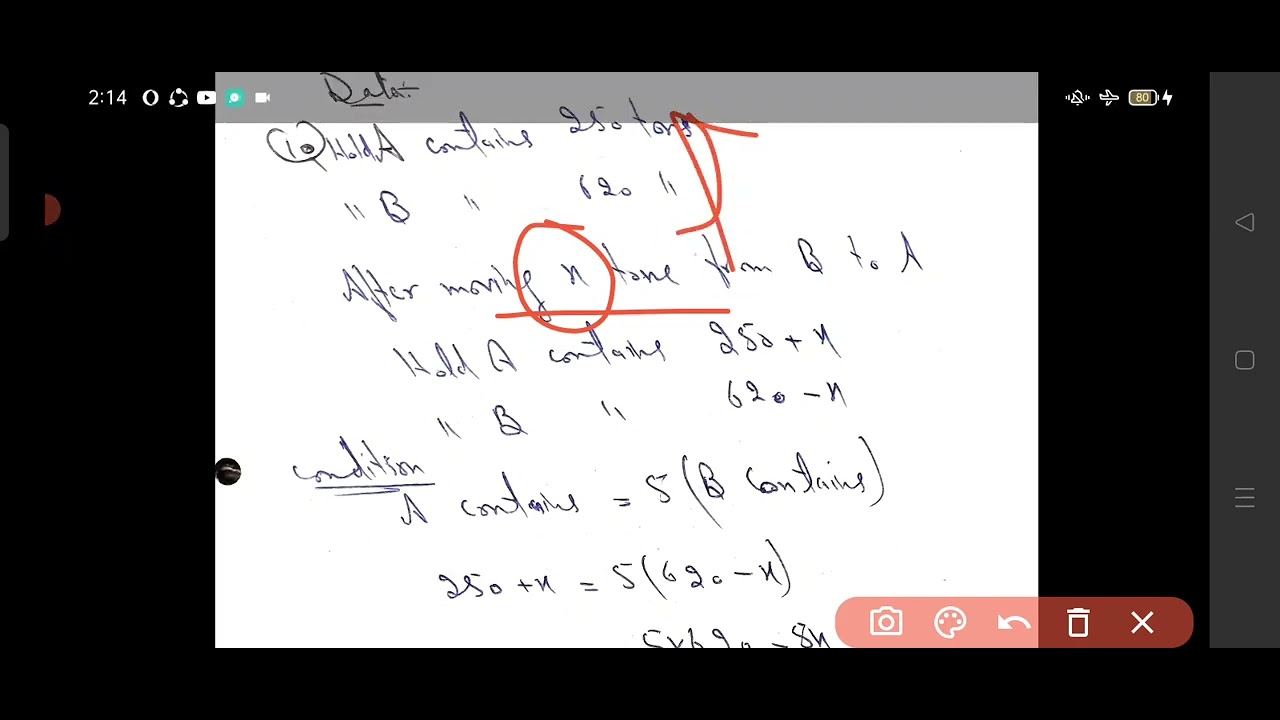 2:14
80
Data:-
(10) Hold A contains 250 tons
" B " 620 "
After moving x tone from B to A
Hold A contains 250 + x
" B " 620 - x
condition
A contains = 5 (B contains)
250 + x = 5(620 - x)
5x620 - 5x